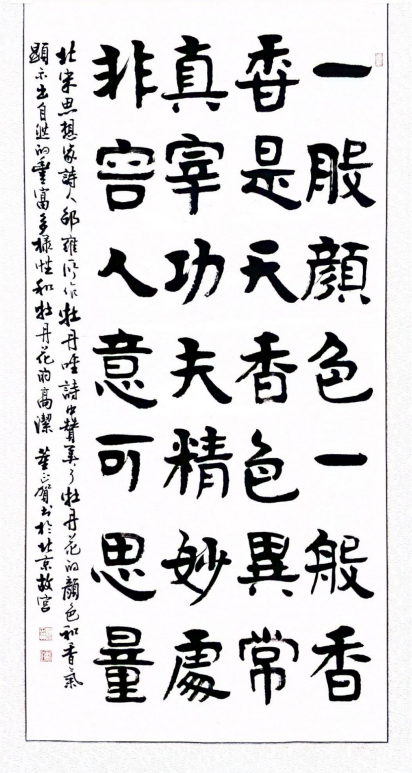 一般顔色一般香
香是天香色異常
真宰功夫精妙處
非容人意可思量
北宋思想家詩人邵雍所作牡丹唫詩中贊美了牡丹花的顏色和香氣
顯示出自然的豐富多樣性和牡丹花的高潔 董正賀書於北京故宮